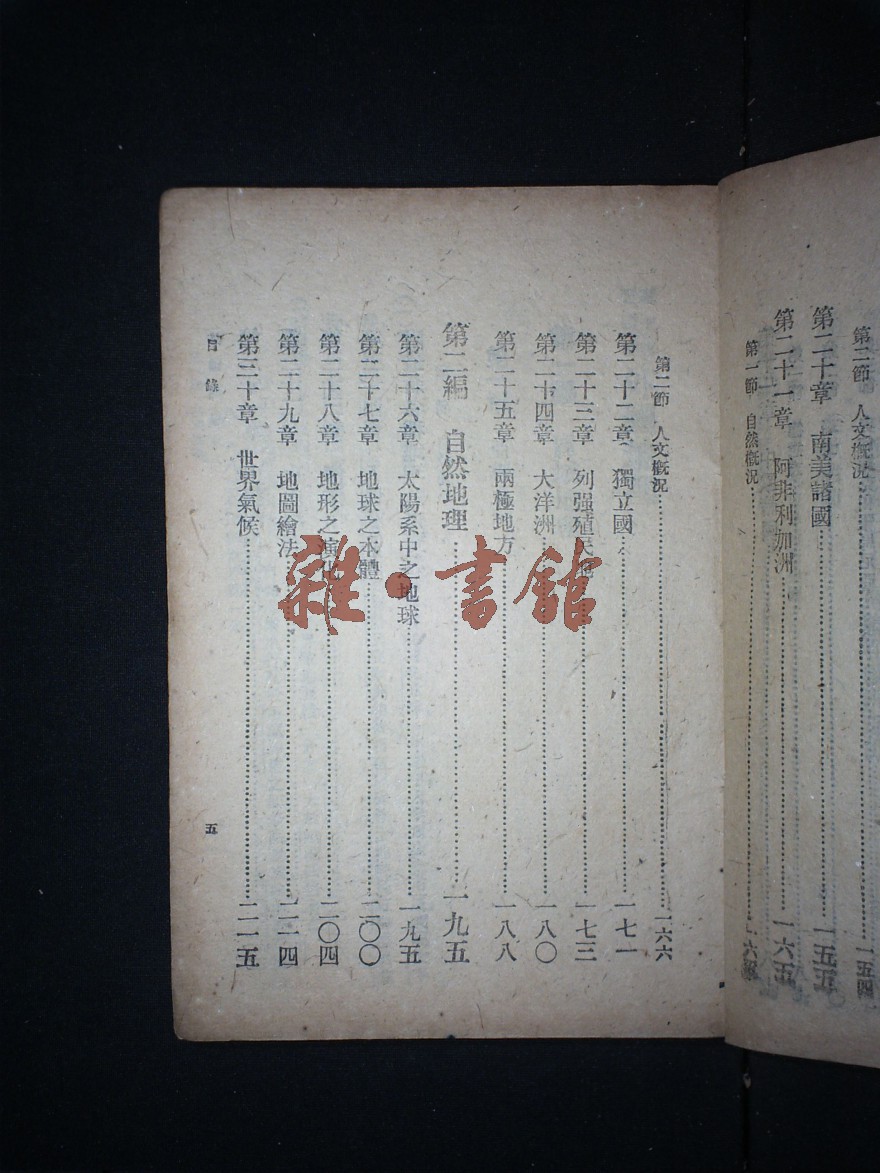 第二節 人文概況……一五四
第二十章 南美諸國……一五五
第二十一章 阿非利加洲……一六五
第一節 自然概況……一六五
第二節 人文概況……一六六
第二十二章 獨立國……一七一
第二十三章 列强殖民地……一七三
第二十四章 大洋洲……一八〇
第二十五章 兩極地方……一八八
第二編 自然地理……一九五
第二十六章 太陽系中之地球……一九五
第二十七章 地球之本體……二〇〇
第二十八章 地形之演化……二〇四
第二十九章 地圖繪法……二一四
第三十章 世界氣候……二一五
目錄
五
雜·書館